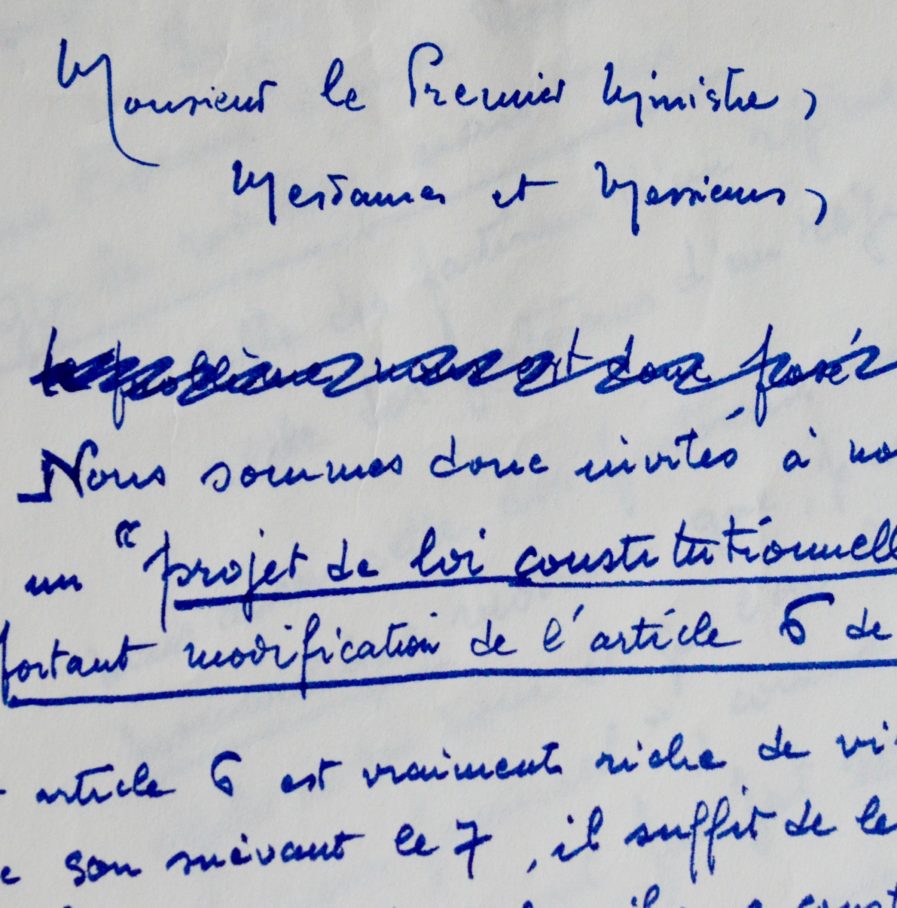 Monsieur le Premier Ministre,
Mesdames et Messieurs,
est donc posé
Nous sommes donc invités à no
un "projet de loi constitutionnell
portant modification de l'article 6 de
article 6 est vraiment riche de vi
e son suivant le 7, il suffit de le